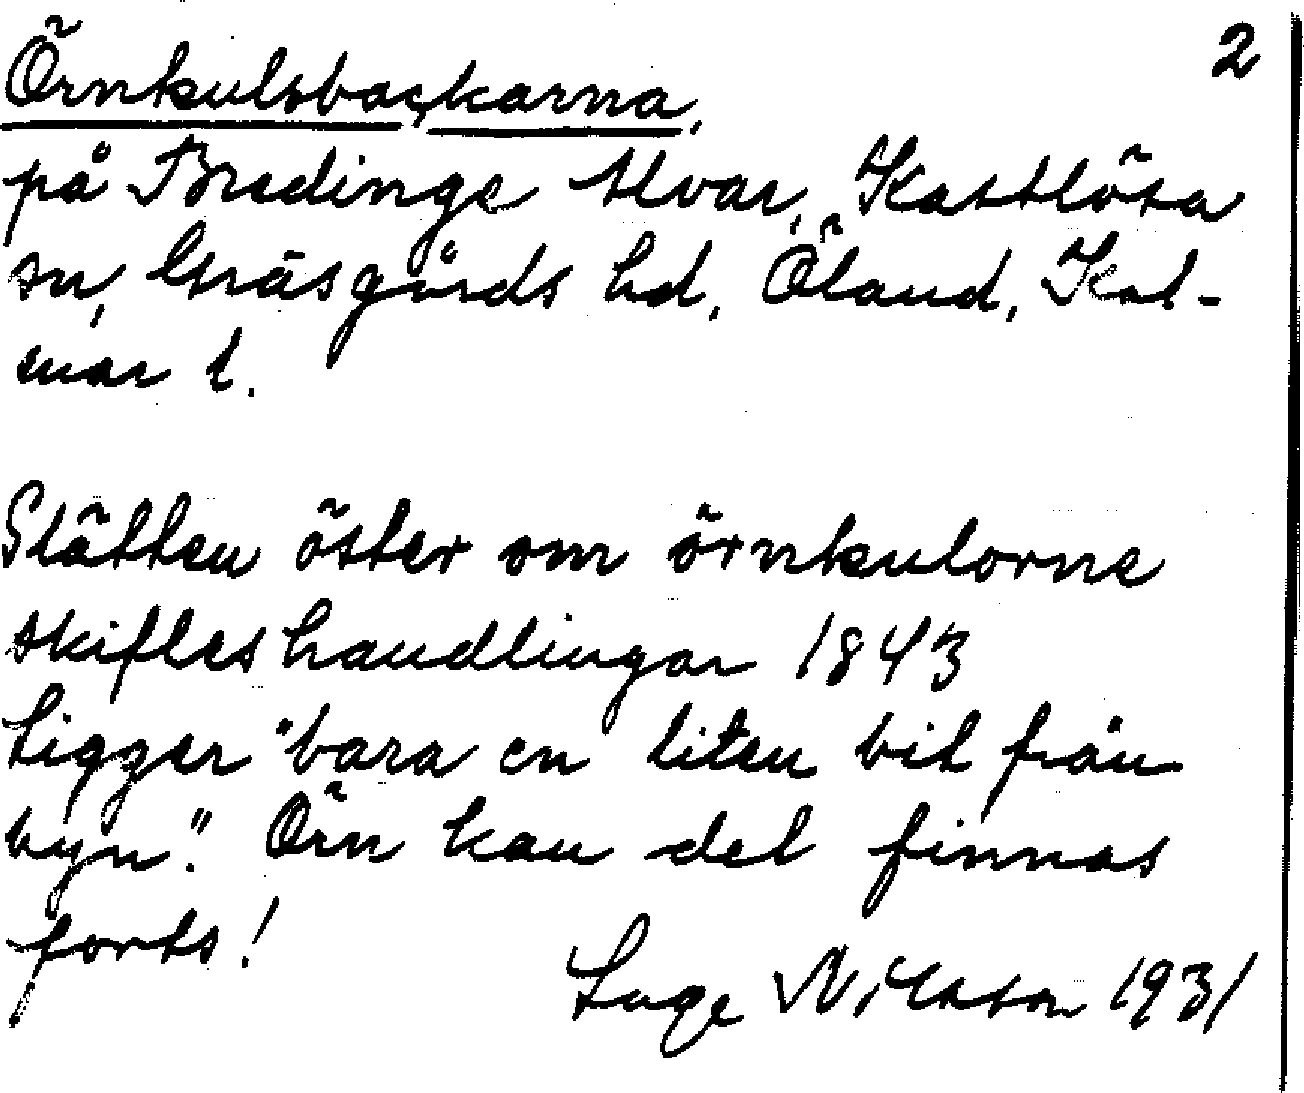 2
Örnkulsbackarna,
på Bredinge Alvar, Kastlösa
sn, Gräsgårds hd, Öland, Kal-
mar l.
Slätten öster om örnkulorne
skifteshandlingar 1843
Ligger "bara en liten bit från
byn". Örn kan det finnas
forts!
Inge Nilsson 1931